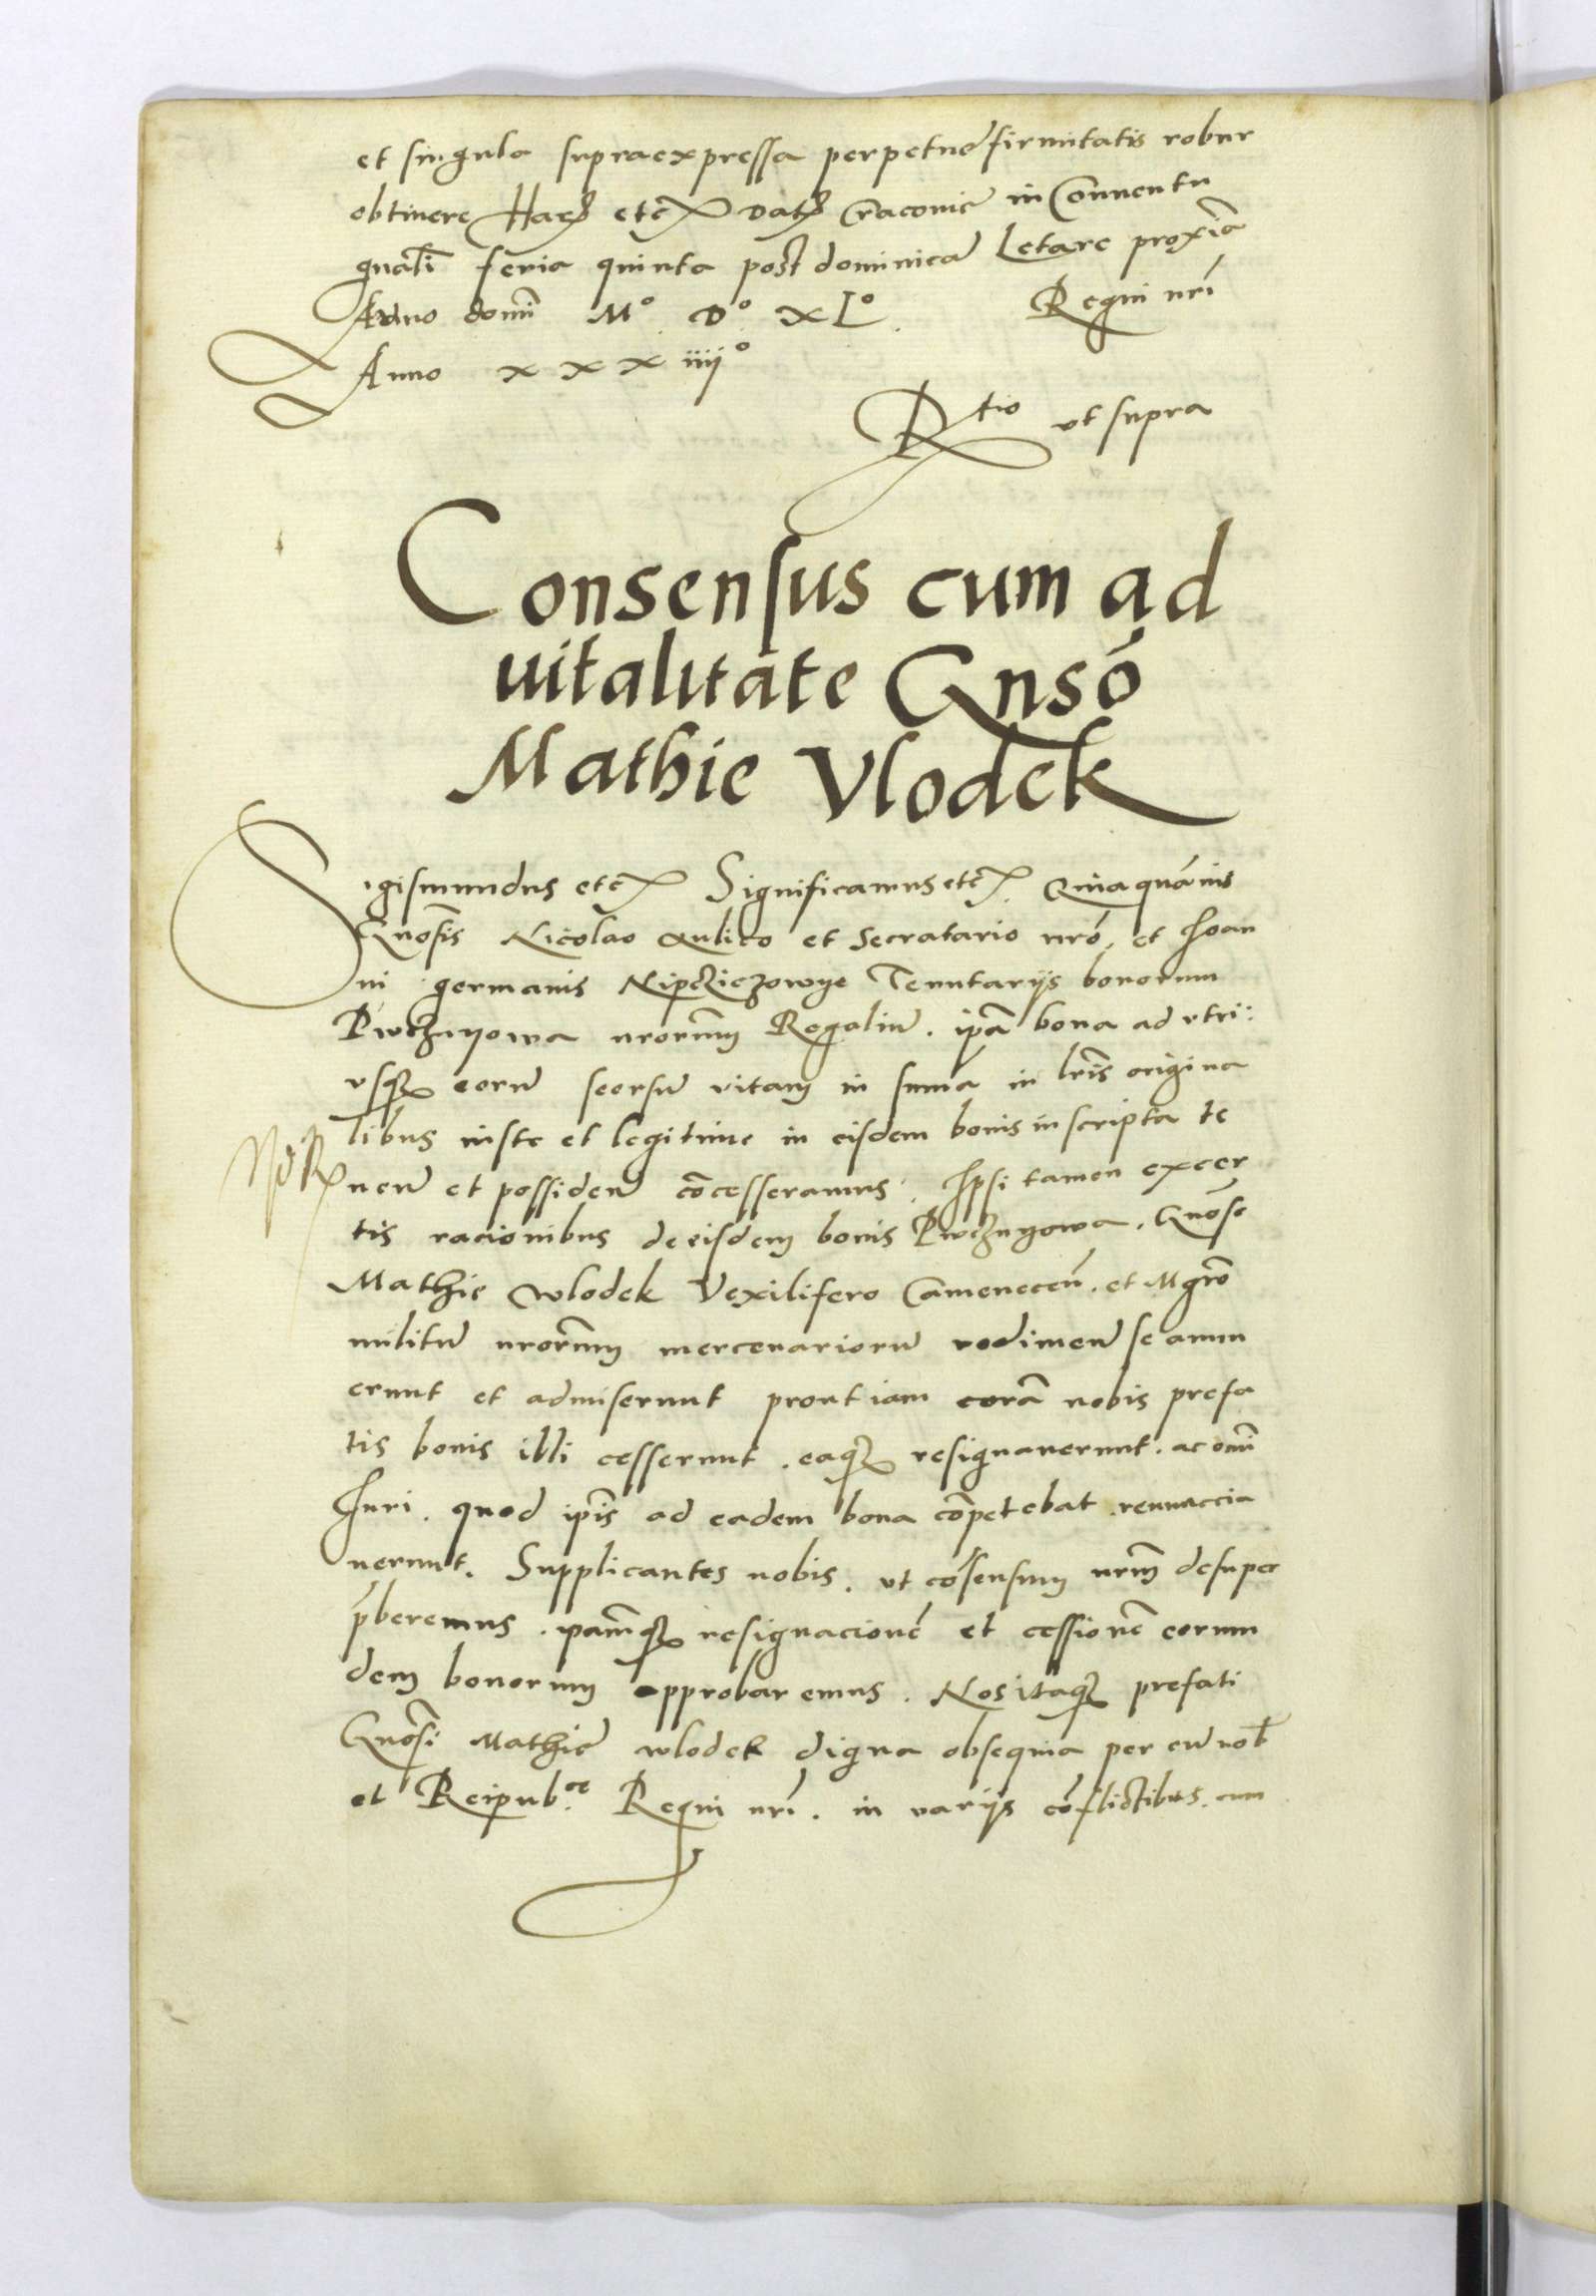 et singula supraexpressa perpetue firmitatis robur
obtinere Harꝝ etc Datꝝ Cracovie in Conventu
gnali feria quinta post dominicã Letare proximã
Anno domi M° D° XL° Regni nri
Anno xxxiiij°
Rtio ut supra
Consensus cum ad
uitalitate Gnsó
Mathie Vlodek
Sigismundus etc Significamus etc. Quia quãuis
Gnosis Nicolao Aulico et Secratario nró, et Joan
ni germanis Tenutarijs bonorum
Pwcznyowa nrorum Regaliũ. ipã bona ad utri:
usqꝫ eorũ seorsũ vitam in suma in lris origina
libus iuste et legitime in eisdem bonis inscripta te
nenꝰ et possidenꝰ cõcesseramus. Ipsi tamen excer
tis racionibus de eisdem bonis Pwcznyowa. Gnose
Mathie Wlodek Vexilifero Cameneceñ. et Mgro
militũ nrorum mercenariorũ redimenꝰ se annu
erunt et admiserunt prout iam corã nobis prefa
tis bonis illi cesserunt. eaqꝫ resignauerunt. ac omi
Juri. quod ipis ad eadem bona cõpetebat. renuaccia
uerunt. Supplicantes nobis. ut cõsensum nrm desuper
pberemus. ipamqꝫ resignacioné et cessioné eorun
dem bonorum approbaremus. Nos itaqꝫ prefati
Gnosi Mathie wlodek digna obsequia per eũ nob
et Reipubce Regni nri. in varijs cõflictibus. cum